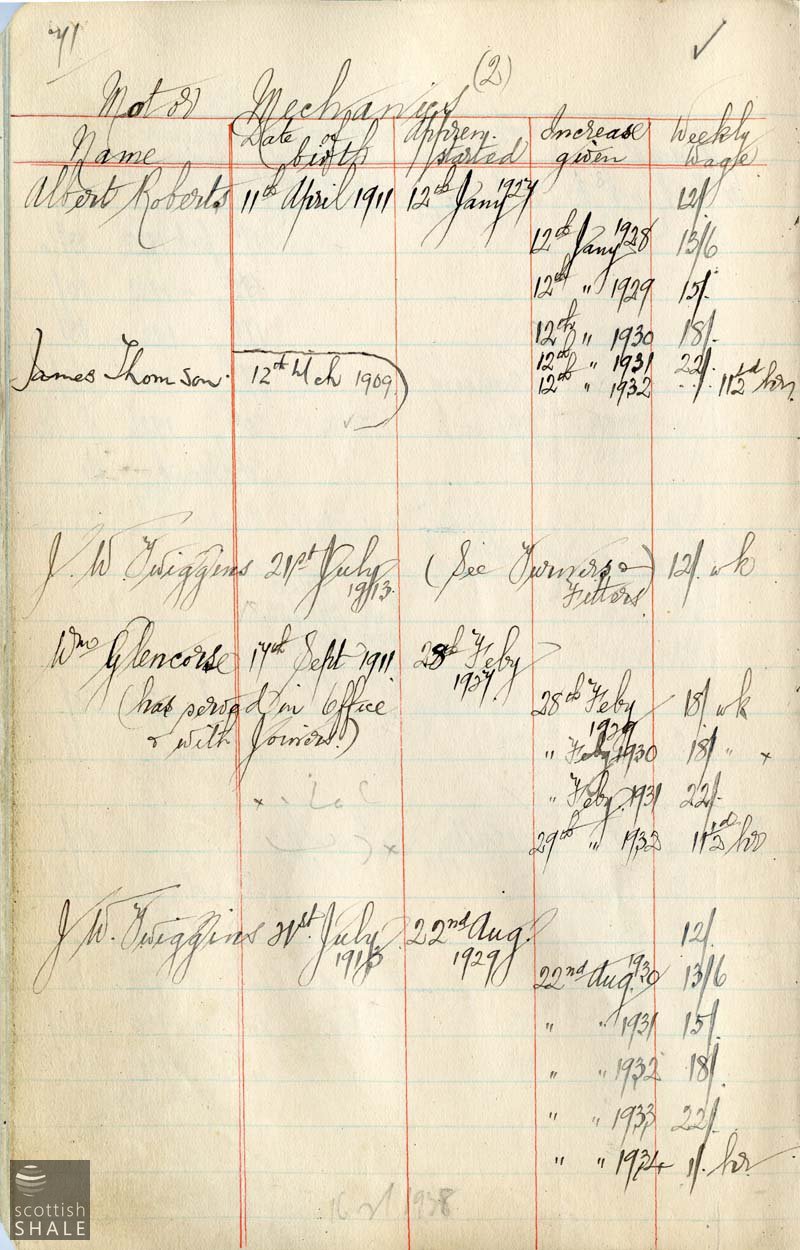 71
(2)
Motor Mechanics
Name Date of birth Appren. started Increase given Weekly Wage
Albert Roberts 11th April 1911 12th Jany 1927 12/
12th Jany 1928 13/6
12th " 1929 15/.
12th " 1930 18/.
12th " 1931 22/.
James Thomson. 12th Mch 1909. 12th " 1932 " 11½d hr.
J. W. Twiggins 21st July 1913. (See Turners & Fitters) 12/. wk
Wm Glencorse 17th Sept 1911 28th Feby 1927
(has served in Office & with Joiners.) 28th Feby 1929 18/ wk
" Feby 1930 18/ " x
" Feby 1931 22/.
29th " 1932 11½d hr
J. W. Twiggins 21st July 1913 22nd Aug. 1929 12/.
22nd Aug 1930 13/6
" " 1931 15/.
" " 1932 18/.
" " 1933 22/.
" " 1934 1/. hr
1938
scottish
SHALE